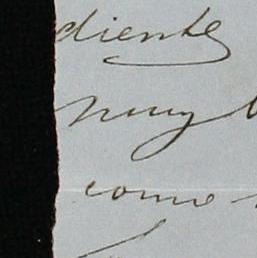 diente
muy
como